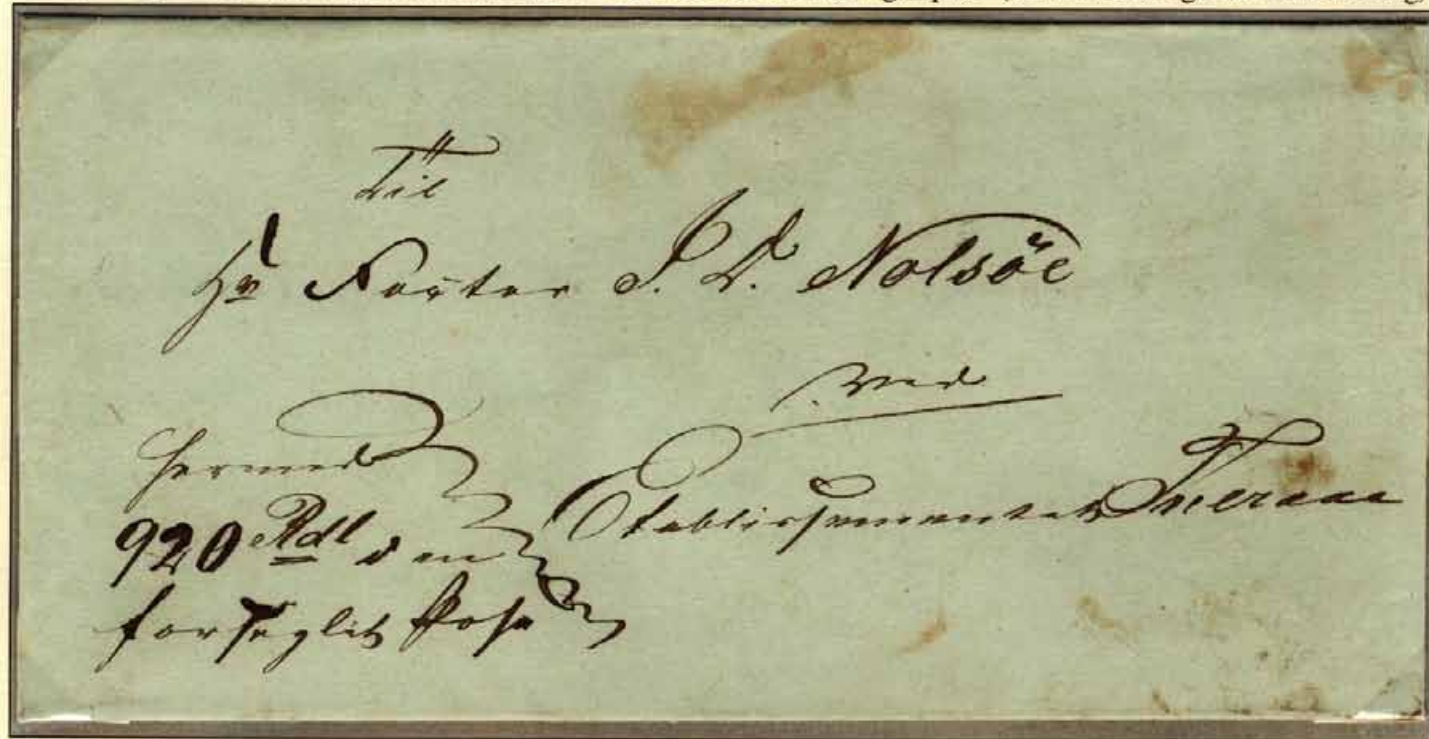 Til
Hr Factor J. D. Nolsöe
ved
Etablissementet Tveraae
hermed
920 Rdl i en
forseglet Pose